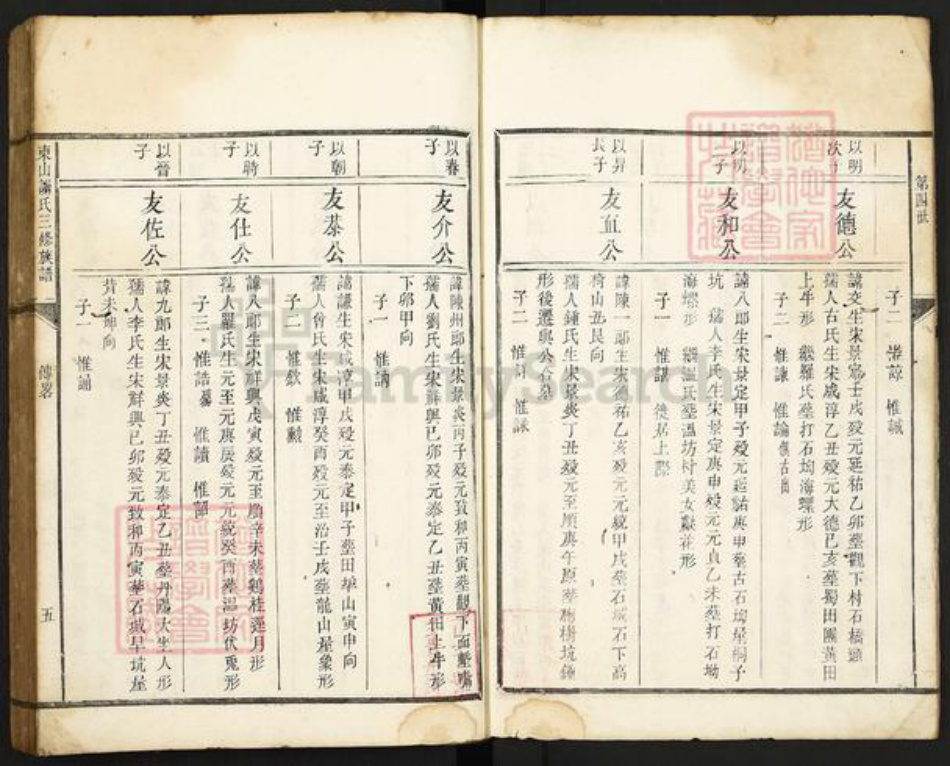 第四世
子二 惟諒 惟誠
以明次子
友德公
諱交生宋景定壬戌歿元延祐乙卯塟觀下村石橋頭
孺人古氏生宋咸淳乙丑歿元大德己亥塟蜀田團黃田
上牛形 繼羅氏塟打石坳海螺形
子二 惟諫 惟論
以明三子
友和公
諱八郎生宋景定甲子歿元延祐庚申塟古石坳星桐子
坑 孺人李氏生宋景定庚申歿元元貞乙未塟打石坳
海螺形 繼溫氏塟溫坊村美女獻花形
子一 惟諶 徙居上
以昇長子
友直公
諱陳一郎生宋德祐乙亥歿元元統甲戌塟石城石下高
椅山丑艮向
孺人鍾氏生宋景炎丁丑歿元至順庚午原塟桐樹坑鐘
形後遷與公合墓
子二 惟 惟
以春子
友介公
諱陳州郎生宋景炎丙子歿元致和丙寅塟觀下面
孺人劉氏生宋祥興己卯歿元泰定乙丑塟黃田上牛形
下卯甲向
子一 惟訥
以朝子
友恭公
諱謙生宋咸淳甲戌歿元泰定甲子塟田 山寅申向
孺人曾氏生宋咸淳癸酉歿元至治壬戌塟龍山屋象形
子二 惟欽 惟黻
以時子
友仕公
諱八郎生宋祥興戊寅歿元至順辛未塟鷄桂逐月形
孺人羅氏生元至元庚辰歿元元統癸酉塟溫坊伏兎形
子三 惟誥 惟讀 惟
以晉子
友佐公
諱九郎生宋景炎丁丑歿元泰定乙丑塟丹陽大坐人形
孺人李氏生宋祥興己卯歿元致和丙寅塟石城旱坑屋
背未坤向
子一 惟誦
東山 氏三修族譜
傳畧
五
FamilySearch